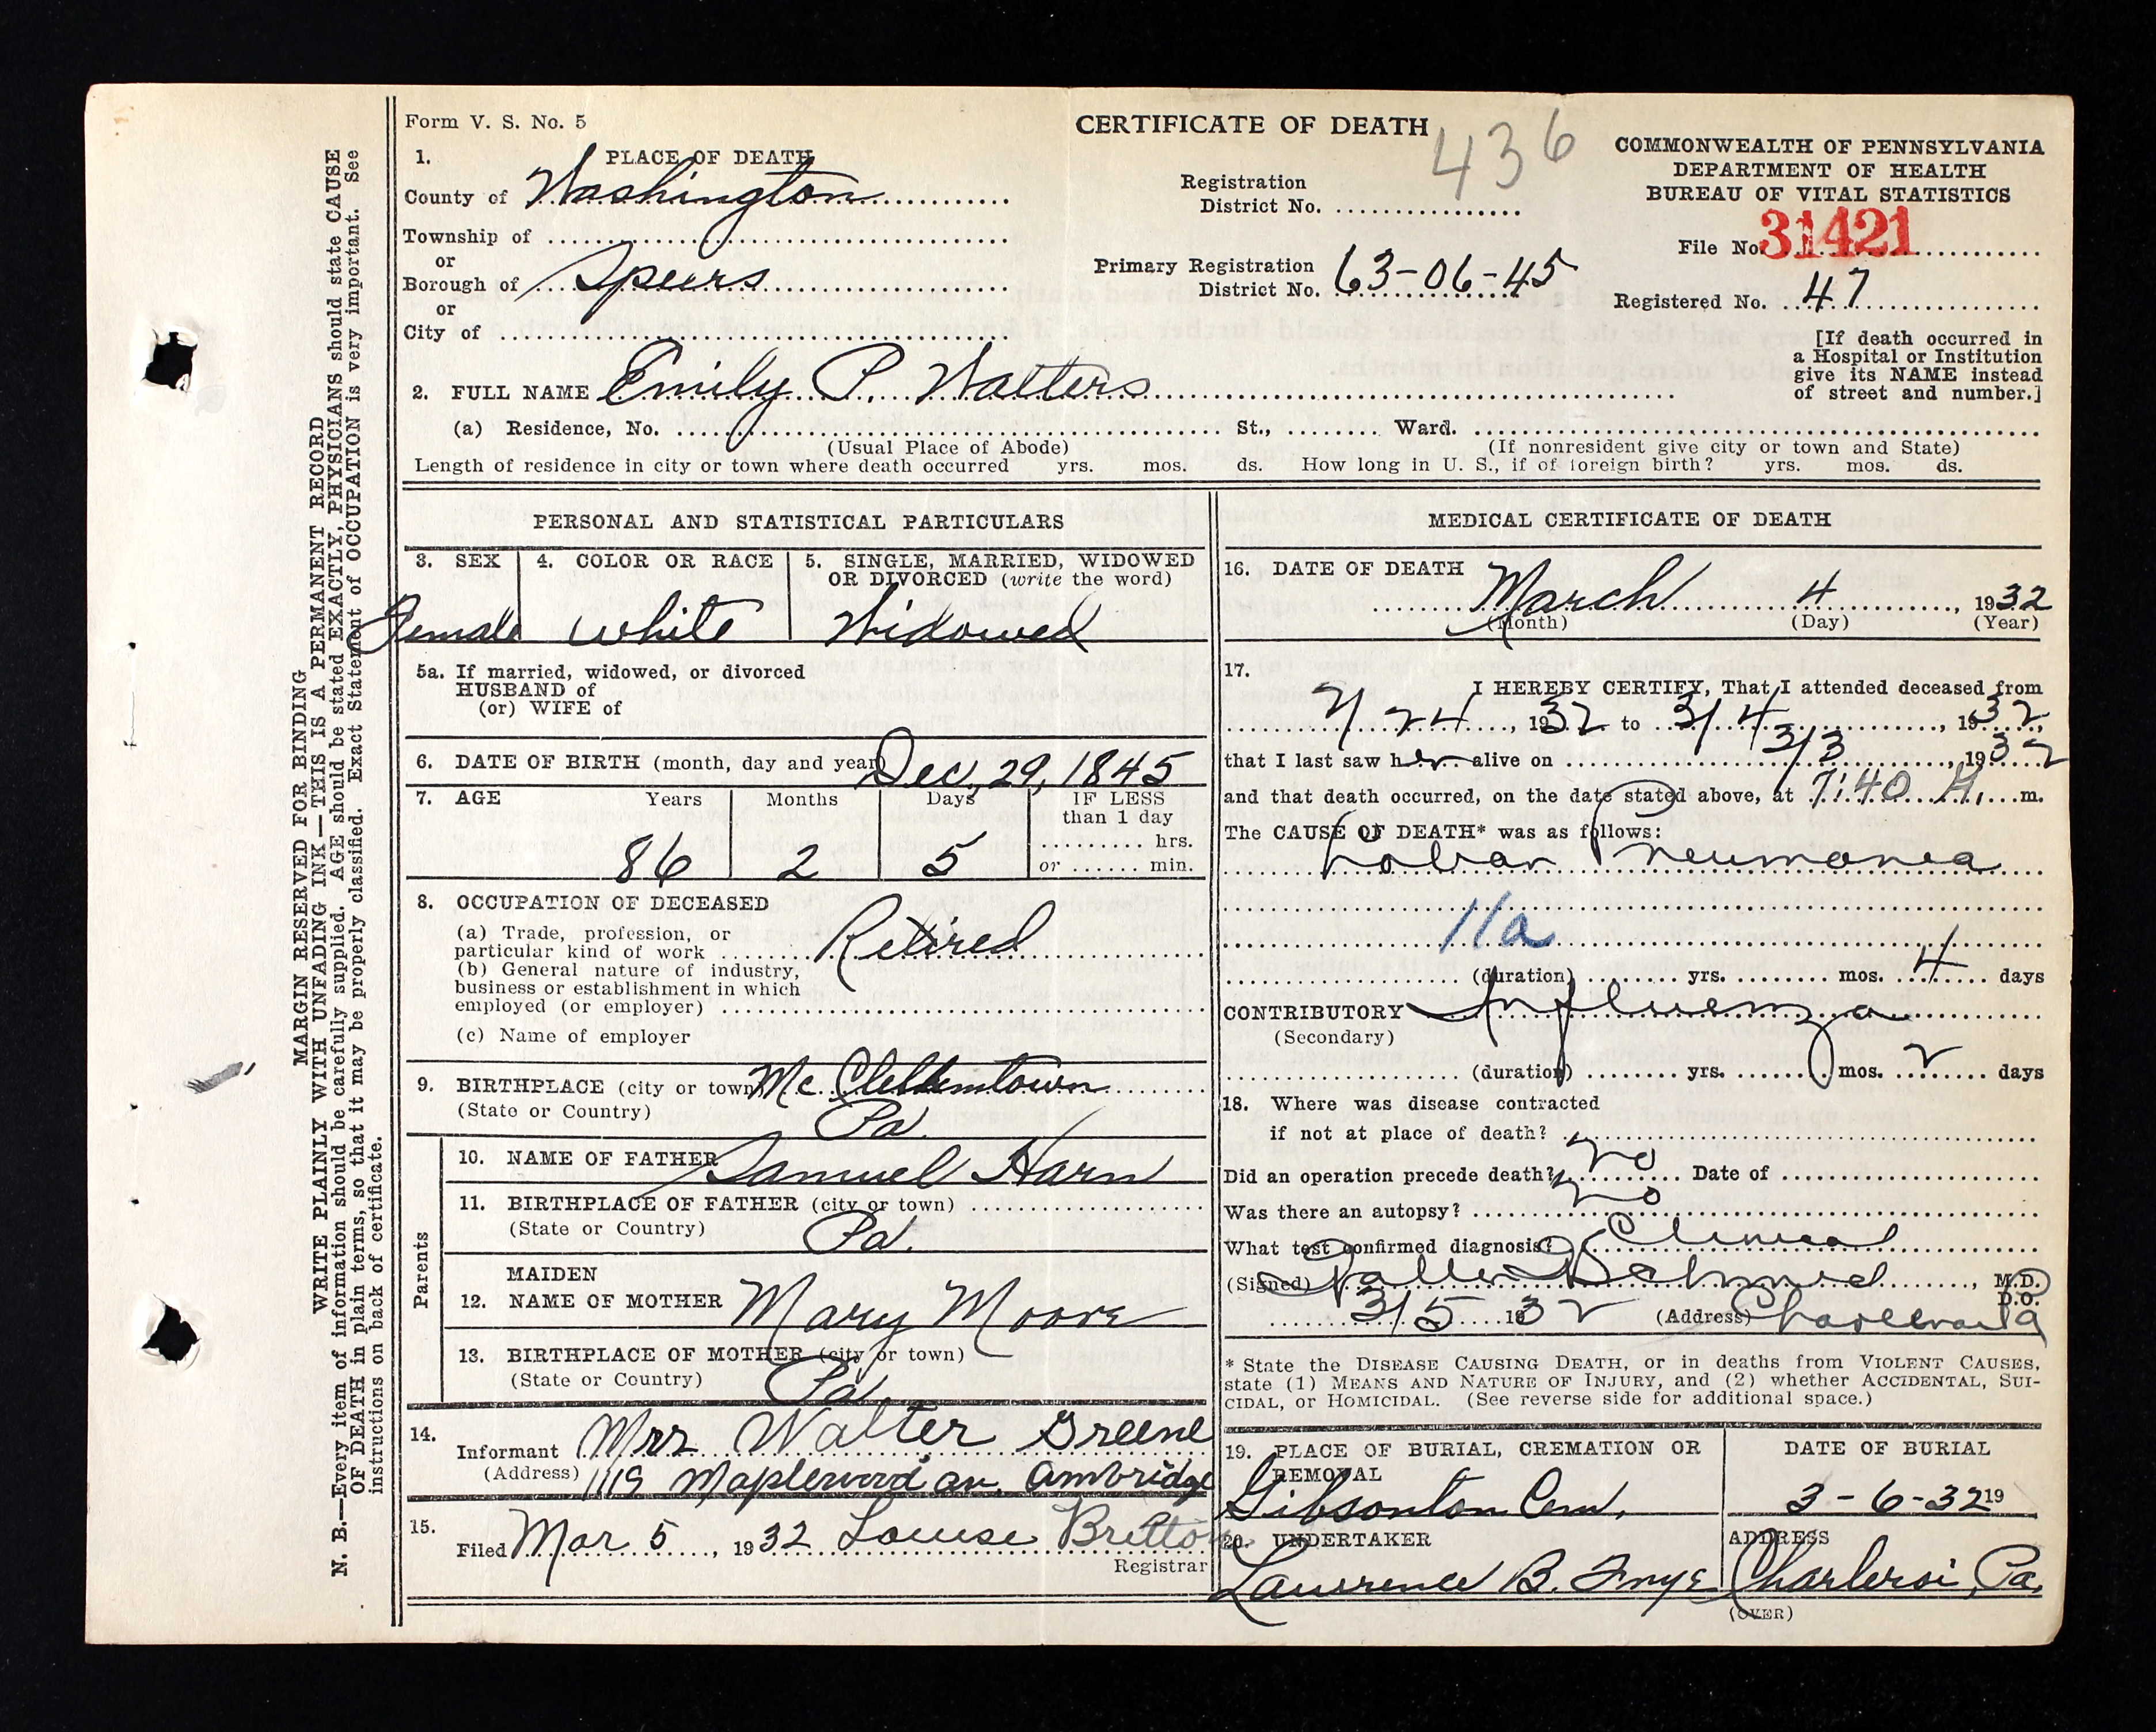 Form V. S. No. 5
CERTIFICATE OF DEATH
436
COMMONWEALTH OF PENNSYLVANIA
DEPARTMENT OF HEALTH
BUREAU OF VITAL STATISTICS
File No. 31421
Registered No. 47
1. PLACE OF DEATH
County of Washington
Township of
or
Borough of Speers
or
City of
Registration
District No.
Primary Registration
District No. 63-06-45
[If death occurred in
a Hospital or Institution
give its NAME instead
of street and number.]
2. FULL NAME Emily P. Walters
(a) Residence, No. St., Ward.
(Usual Place of Abode) (If nonresident give city or town and State)
Length of residence in city or town where death occurred yrs. mos. ds. How long in U. S., if of foreign birth? yrs. mos. ds.
PERSONAL AND STATISTICAL PARTICULARS
3. SEX 4. COLOR OR RACE 5. SINGLE, MARRIED, WIDOWED
OR DIVORCED (write the word)
Female white Widowed
5a. If married, widowed, or divorced
HUSBAND of
(or) WIFE of
6. DATE OF BIRTH (month, day and year) Dec, 29, 1845
7. AGE Years Months Days IF LESS
than 1 day
hrs.
or min.
86 2 5
8. OCCUPATION OF DECEASED
(a) Trade, profession, or
particular kind of work Retired
(b) General nature of industry,
business or establishment in which
employed (or employer)
(c) Name of employer
9. BIRTHPLACE (city or town) Mc Clellentown
(State or Country) Pa.
Parents
10. NAME OF FATHER Samuel Harn
11. BIRTHPLACE OF FATHER (city or town)
(State or Country) Pa.
MAIDEN
12. NAME OF MOTHER Mary Moore
13. BIRTHPLACE OF MOTHER (city or town)
(State or Country) Pa.
14.
Informant Mrs Walter Greene
(Address) 1119 Maplewood av. Ambridge
15.
Filed Mar 5, 1932 Louise Britton
Registrar
MEDICAL CERTIFICATE OF DEATH
16. DATE OF DEATH
March 4, 1932
(Month) (Day) (Year)
17.
I HEREBY CERTIFY, That I attended deceased from
2/24, 1932 to 3/4, 1932,
that I last saw her alive on 3/3, 1932
and that death occurred, on the date stated above, at 7:40 A. m.
The CAUSE OF DEATH* was as follows:
Lobar Pneumonia
11a
(duration) yrs. mos. 4 days
CONTRIBUTORY Influenza
(Secondary)
(duration) yrs. mos. 2 days
18. Where was disease contracted
if not at place of death?
Did an operation precede death? no Date of
Was there an autopsy? no
What test confirmed diagnosis? Clinical
(Signed) , M.D.
D.O.
3/5 1932 (Address) Charleroi Pa
* State the DISEASE CAUSING DEATH, or in deaths from VIOLENT CAUSES,
state (1) MEANS AND NATURE OF INJURY, and (2) whether ACCIDENTAL, SUI-
CIDAL, or HOMICIDAL. (See reverse side for additional space.)
19. PLACE OF BURIAL, CREMATION OR
REMOVAL
Gibsonton Cem.
DATE OF BURIAL
3-6-32 19
20. UNDERTAKER ADDRESS
Lawrence B. Frye Charleroi, Pa.
(OVER)
MARGIN RESERVED FOR BINDING
WRITE PLAINLY WITH UNFADING INK—THIS IS A PERMANENT RECORD
N. B.—Every item of information should be carefully supplied. AGE should be stated EXACTLY. PHYSICIANS should state CAUSE
OF DEATH in plain terms, so that it may be properly classified. Exact Statement of OCCUPATION is very important. See
instructions on back of certificate.